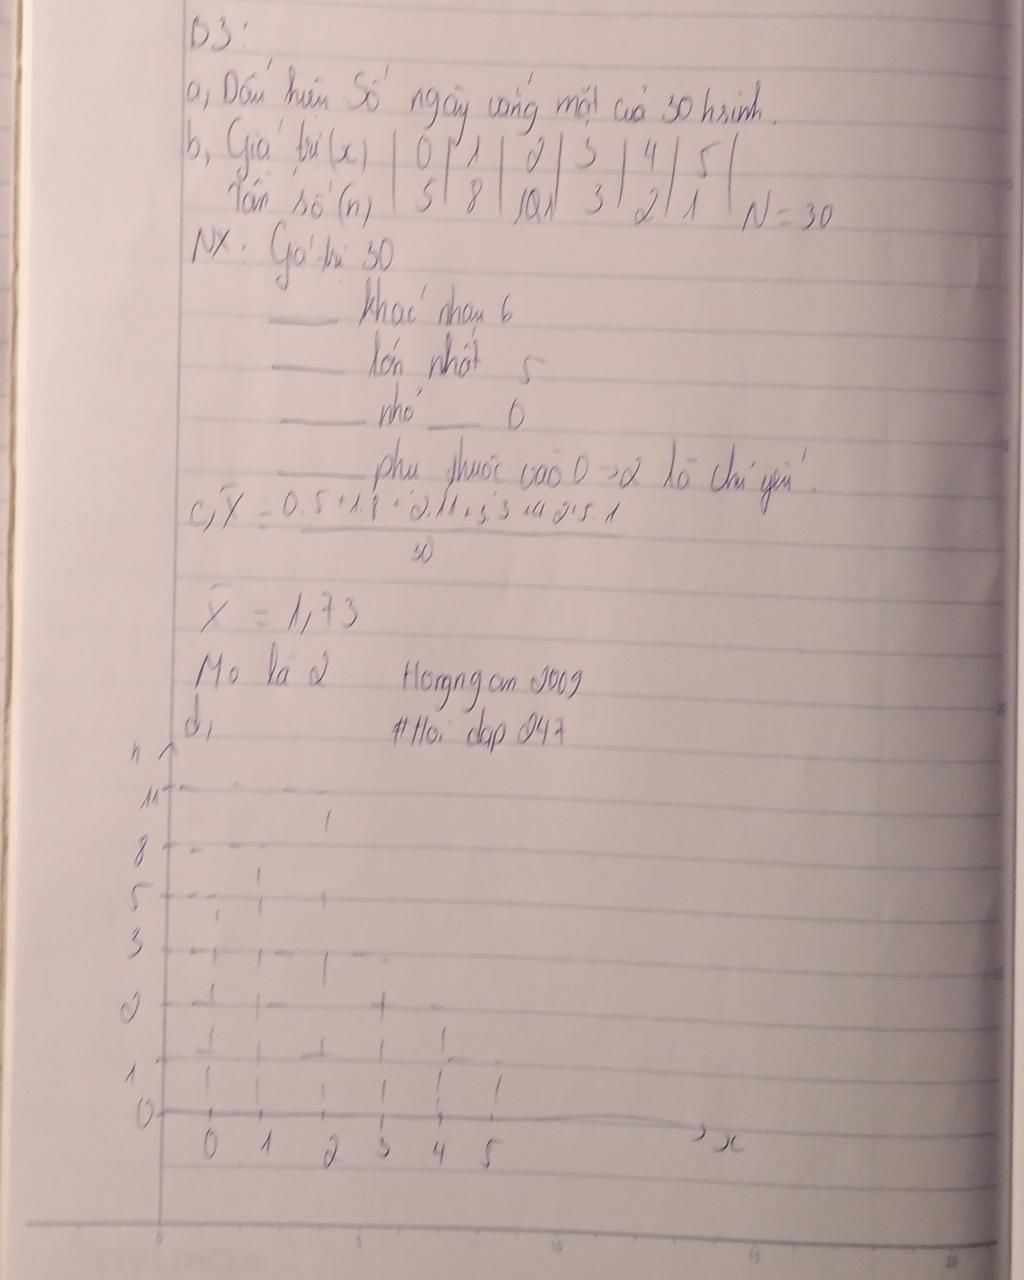 B3:
a, Dấu hiệu Số ngày vắng mặt của 30 hsinh.
b, Giá trị (x) | 0 | 1 | 2 | 3 | 4 | 5 |
Tần số (n) | 5 | 8 | 11 | 3 | 2 | 1 | N = 30
NX: Giá trị 30
___ khác nhau 6
___ lớn nhất 5
___ nhỏ ___ 0
___ phụ thuộc vào 0 → 2 là chủ yếu.
c, X̄ = 0.5+1.8+2.11+3.3+4.2+5.1
30
X̄ = 1,73
Mo là 2 Horngngam 2009
d, #Hoi dap 247
n
11
8
5
3
2
1
0
0 1 2 3 4 5 x
0 5 10 15 20